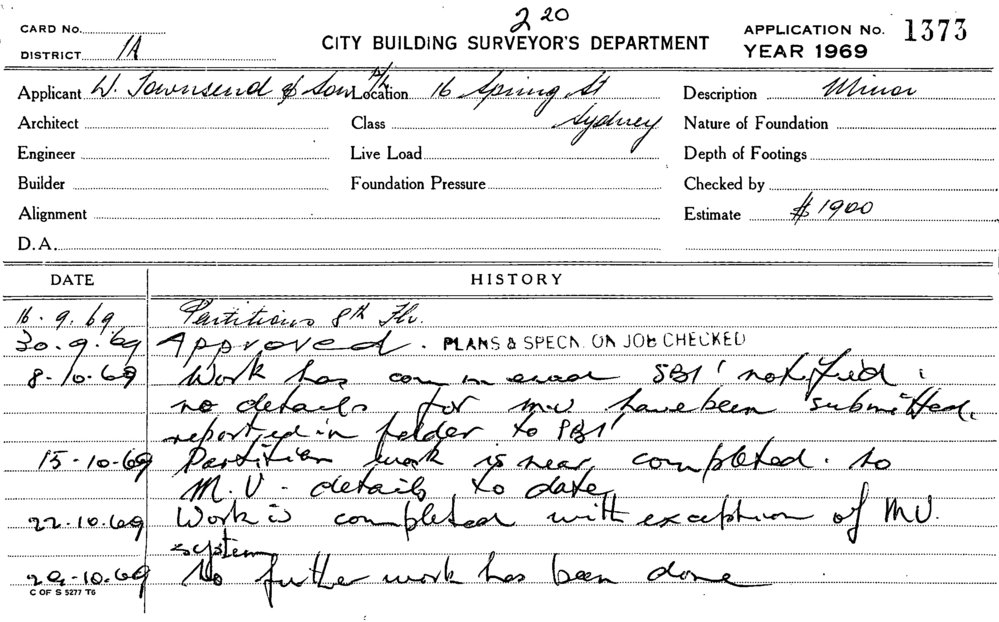 220
CARD No.
CITY BUILDING SURVEYOR'S DEPARTMENT
APPLICATION No. 1373
DISTRICT 1A
YEAR 1969
Applicant W. Townsend & Son P/L Location 16 Spring St Description Minor
Architect Class Sydney Nature of Foundation
Engineer Live Load Depth of Footings
Builder Foundation Pressure Checked by
Alignment Estimate $1900
D.A.
DATE HISTORY
16.9.69 Partitions 8th Flr.
30.9.69 Approved. PLANS & SPECN. ON JOB CHECKED
8.10.69 Work has commenced SBI notified;
no details for M.V have been submitted.
reported in folder to SBI
15-10-69 Partition work is near completed. No
M.V. details to date
22.10.69 Work is completed with exception of M.V.
system
29.10.69 No further work has been done
C OF S 5277 T6